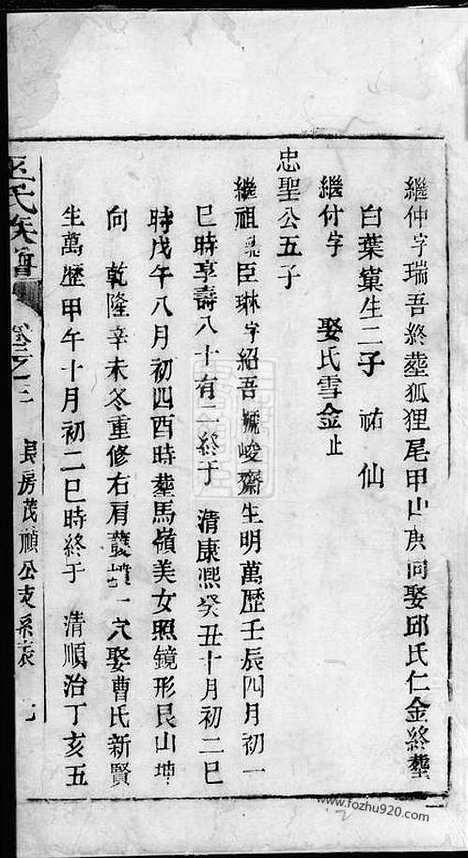 繼仲字瑞吾終塟狐狸尾甲山庚向娶邱氏仁金終塟
白葉窠生二子　祐　仙
繼付字　　娶氏雪金止
忠聖公五子
繼祖臣琳字紹吾號峻齋生明萬歷壬辰四月初一
巳時享壽八十有二終于　清康熙癸丑十月初二巳
時戊午八月初四酉時塟馬嶺美女照鏡形艮山坤
向　乾隆辛未冬重修右肩一穴娶曹氏新賢
生萬歷甲午十月初二巳時終于　清順治丁亥五
氏族譜
卷之
長房茂禎公支系表
七
www.fozhu920.com